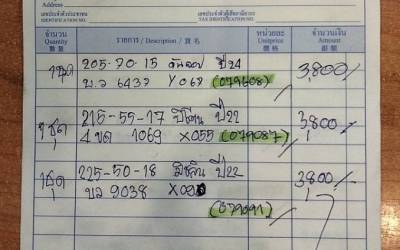 Address
เลขประจำตัวประชาชน
IDENTIFICATION NO.
เลขประจำตัวผู้เสียภาษีอากร
TAX IDENTIFICATION NO.
จำนวน รายการ / Description / 貨名 หน่วยละ จำนวนเงิน
Quantity Unitprice Amount
數量 價格 銀額
1ชุด 205-70-15 ดันลอป ปี24 3,800/-
บว 6437 Y068 (079608)
1ชุด 215-55-17 ปี22 3,800/-
4ขด 1069 X055 (079087)
1ชุด 225-50-18 มิชลิน ปี22 3,800/-
บล 9038
(079091)